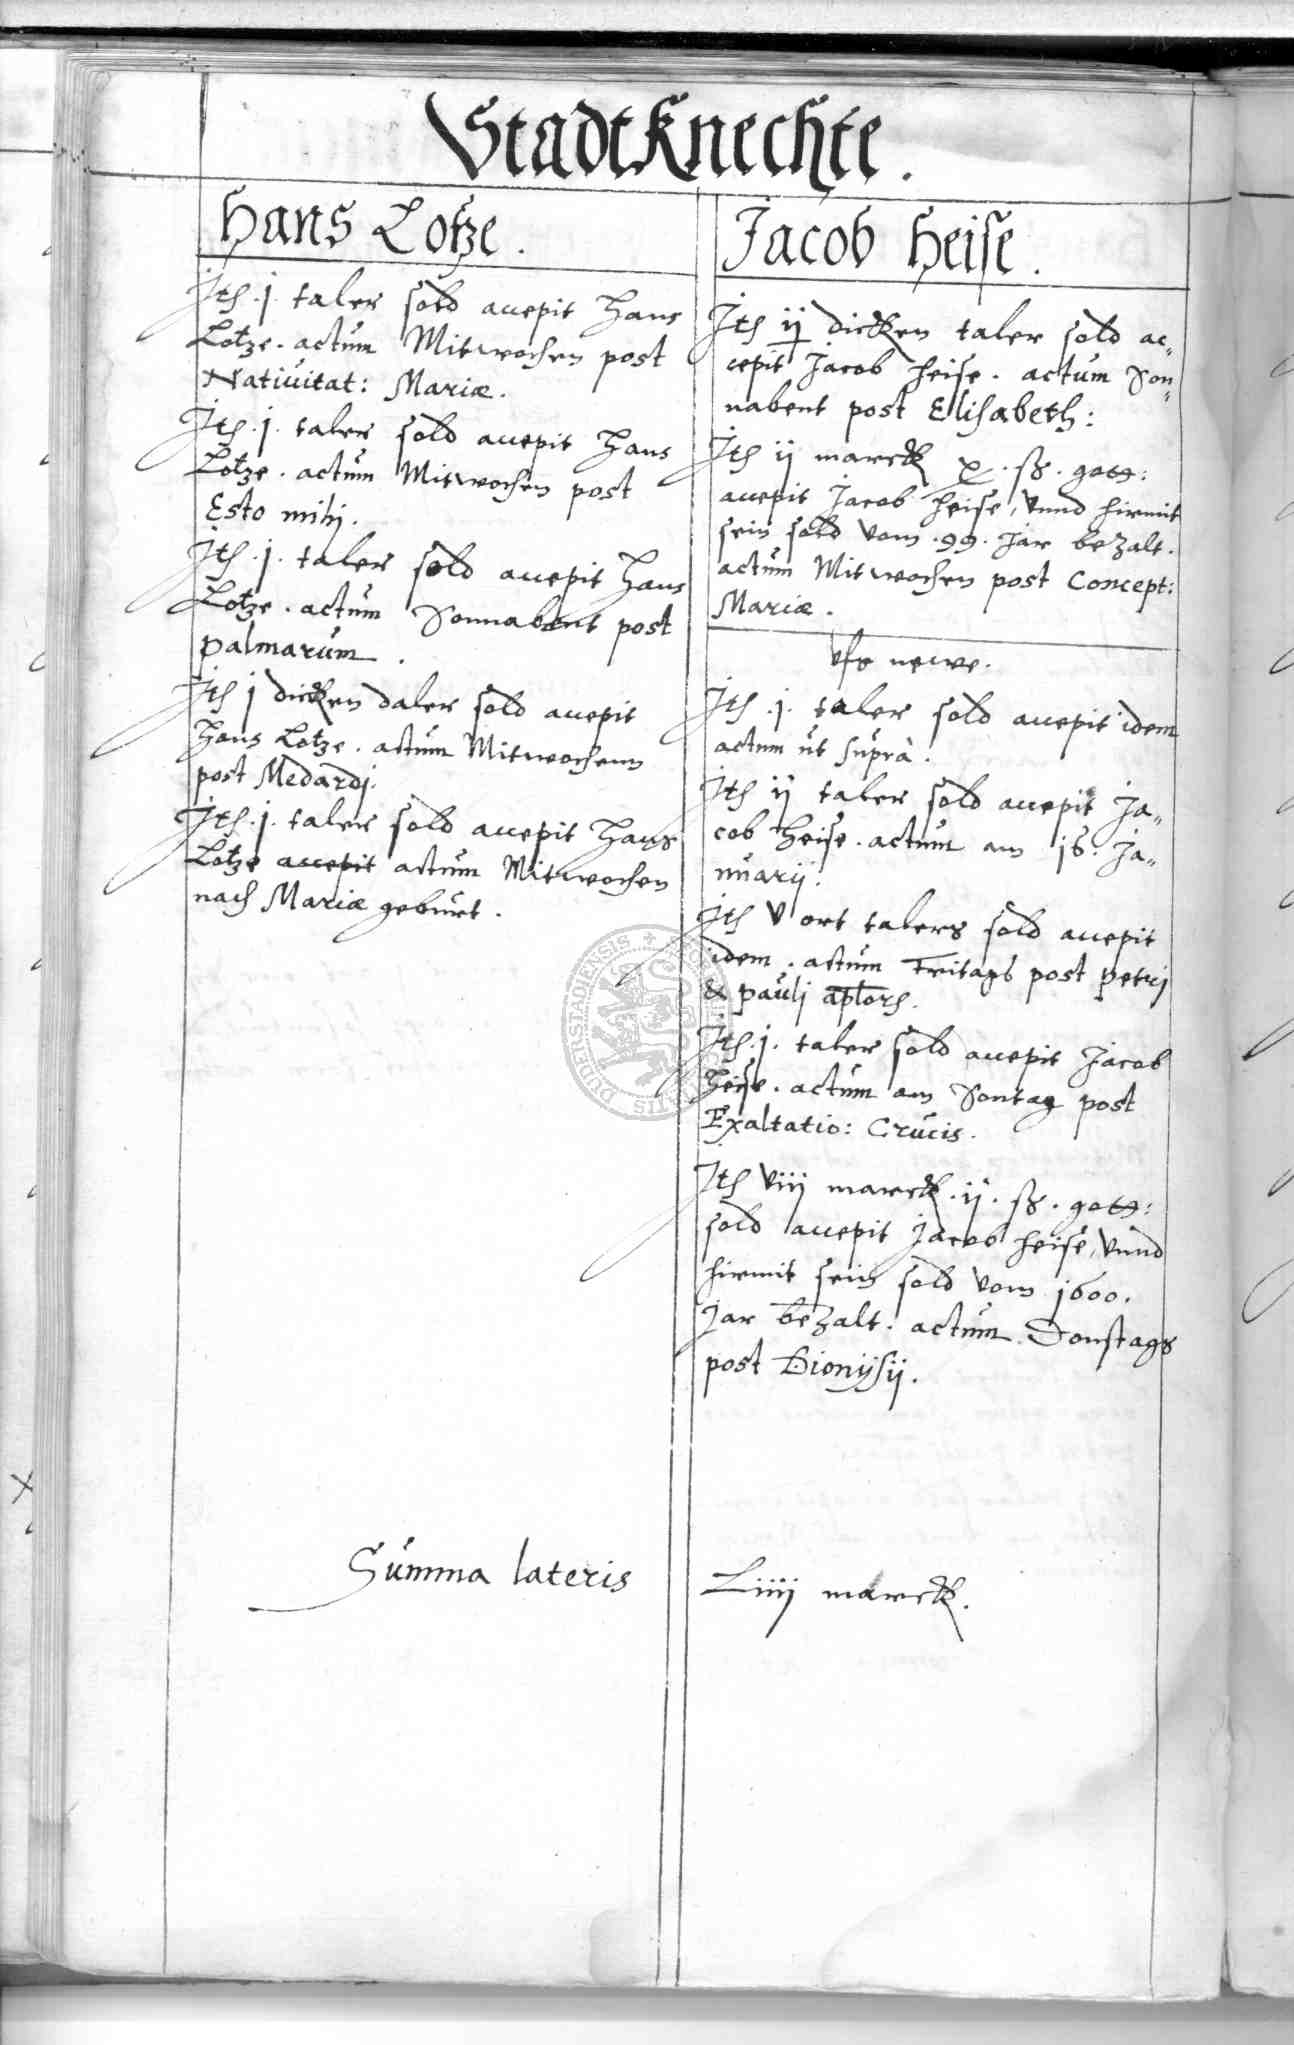 StadtKnechte.
Hans Lotze.
Jtꝫ .j. taler sold accepit Hans
Lotze. actum Mitwochen post
Natiuitat: Mariæ.
Jtꝫ .j. taler sold accepit Hans
Lotze. actum Mitwochen post
Esto mihj.
Jtꝫ .j. taler sold accepit Hans
Lotze. actum Sonnabent post
palmarum.
Jtꝫ j dicken daler sold accepit
Hans Lotze. actum Mitwochenn
post Medardj.
Jtꝫ .j. taler sold accepit Hans
Lotze accepit actum Mitwochen
nach Mariæ geburt.
Jacob Heise.
Jtꝫ ij dicken taler sold ac„
cepit Jacob Heise. actum Son„
nabent post Elisabeth:
Jtꝫ ij marck x. ß. gott:
accepit Jacob Heise, vnnd hirmit
sein sold vom .99. Jar bezalt.
actum Mitwochen post Concept:
Mariæ.
vfs newe.
Jtꝫ .j. taler sold accepit idem
actum ut suprà.
Jtꝫ ij taler sold accepit Ja„
cob Heise. actum am 16. Ja„
nuarij.
Jtꝫ v ort talers sold accepit
idem. actum Fritags post petrj
& paulj aplorꝫ.
Jtꝫ .j. taler sold accepit Jacob
Heise. actum am Sontag post
Exaltatio: Crucis.
Jtꝫ viij marck .ij. ß. gott:
sold accepit Jacob Heise, vnnd
hirmit sein sold vom 1600.
Jar bezalt. actum Donstags
post Dionysij.
Summa lateris Liiij marck.